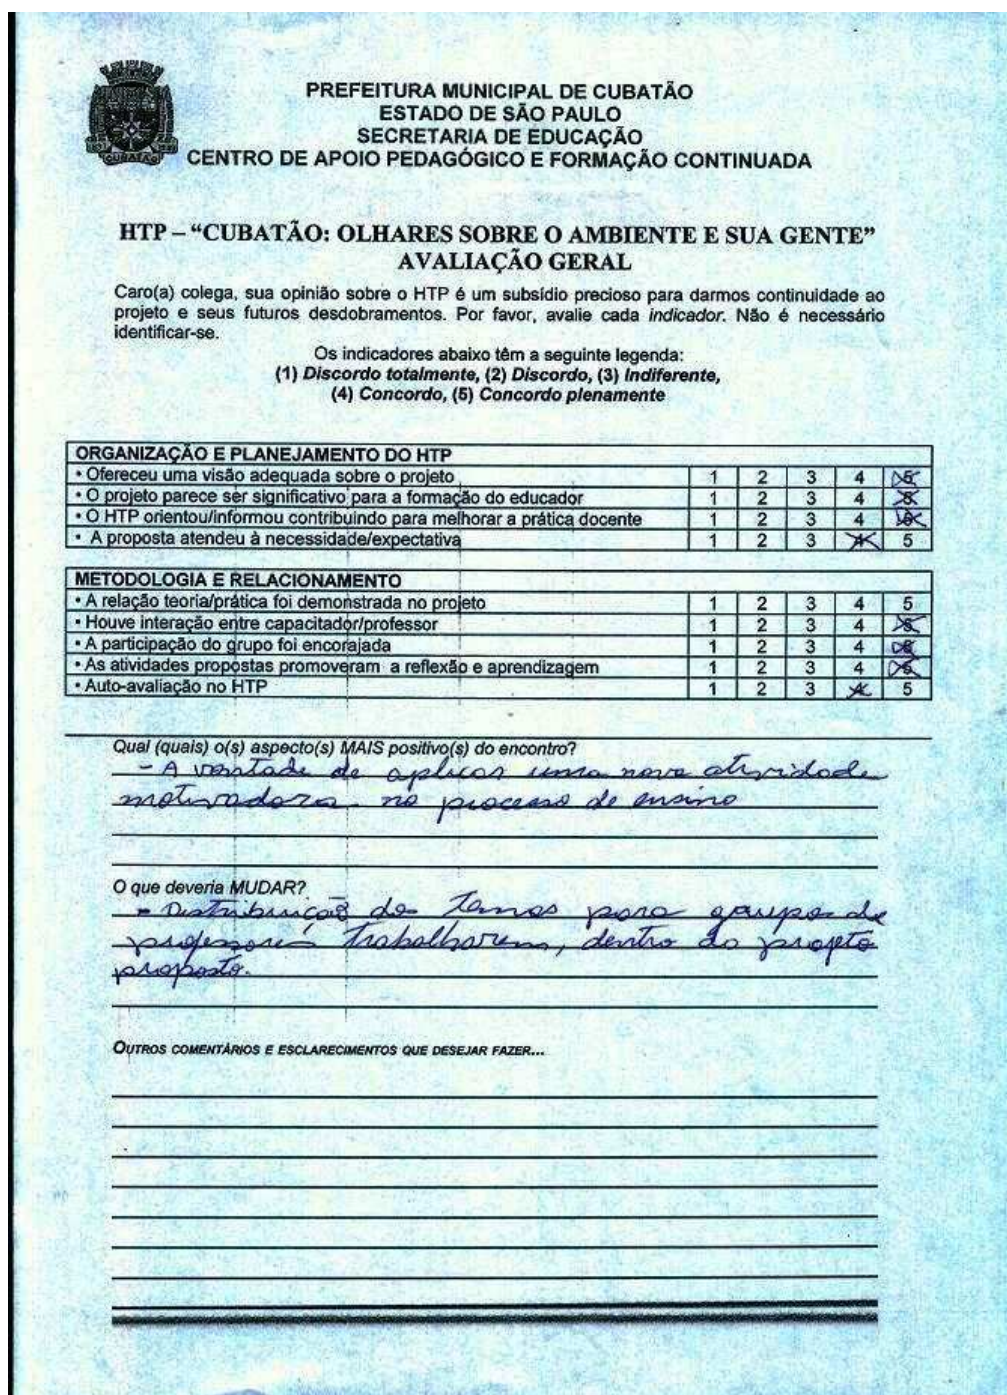 CUBATÃO
PREFEITURA MUNICIPAL DE CUBATÃO
ESTADO DE SÃO PAULO
SECRETARIA DE EDUCAÇÃO
CENTRO DE APOIO PEDAGÓGICO E FORMAÇÃO CONTINUADA
HTP – “CUBATÃO: OLHARES SOBRE O AMBIENTE E SUA GENTE”
AVALIAÇÃO GERAL
Caro(a) colega, sua opinião sobre o HTP é um subsídio precioso para darmos continuidade ao
projeto e seus futuros desdobramentos. Por favor, avalie cada indicador. Não é necessário
identificar-se.
Os indicadores abaixo têm a seguinte legenda:
(1) Discordo totalmente, (2) Discordo, (3) Indiferente,
(4) Concordo, (5) Concordo plenamente
ORGANIZAÇÃO E PLANEJAMENTO DO HTP
• Ofereceu uma visão adequada sobre o projeto 1 2 3 4 5
• O projeto parece ser significativo para a formação do educador 1 2 3 4 5
• O HTP orientou/informou contribuindo para melhorar a prática docente 1 2 3 4 5
• A proposta atendeu à necessidade/expectativa 1 2 3 4 5
METODOLOGIA E RELACIONAMENTO
• A relação teoria/prática foi demonstrada no projeto 1 2 3 4 5
• Houve interação entre capacitador/professor 1 2 3 4 5
• A participação do grupo foi encorajada 1 2 3 4 5
• As atividades propostas promoveram a reflexão e aprendizagem 1 2 3 4 5
• Auto-avaliação no HTP 1 2 3 4 5
Qual (quais) o(s) aspecto(s) MAIS positivo(s) do encontro?
- A vontade de aplicar uma nova atividade
motivadora no processo de ensino
O que deveria MUDAR?
- Distribuição de temas para grupos de
professores trabalharem, dentro do projeto
proposto.
OUTROS COMENTÁRIOS E ESCLARECIMENTOS QUE DESEJAR FAZER...